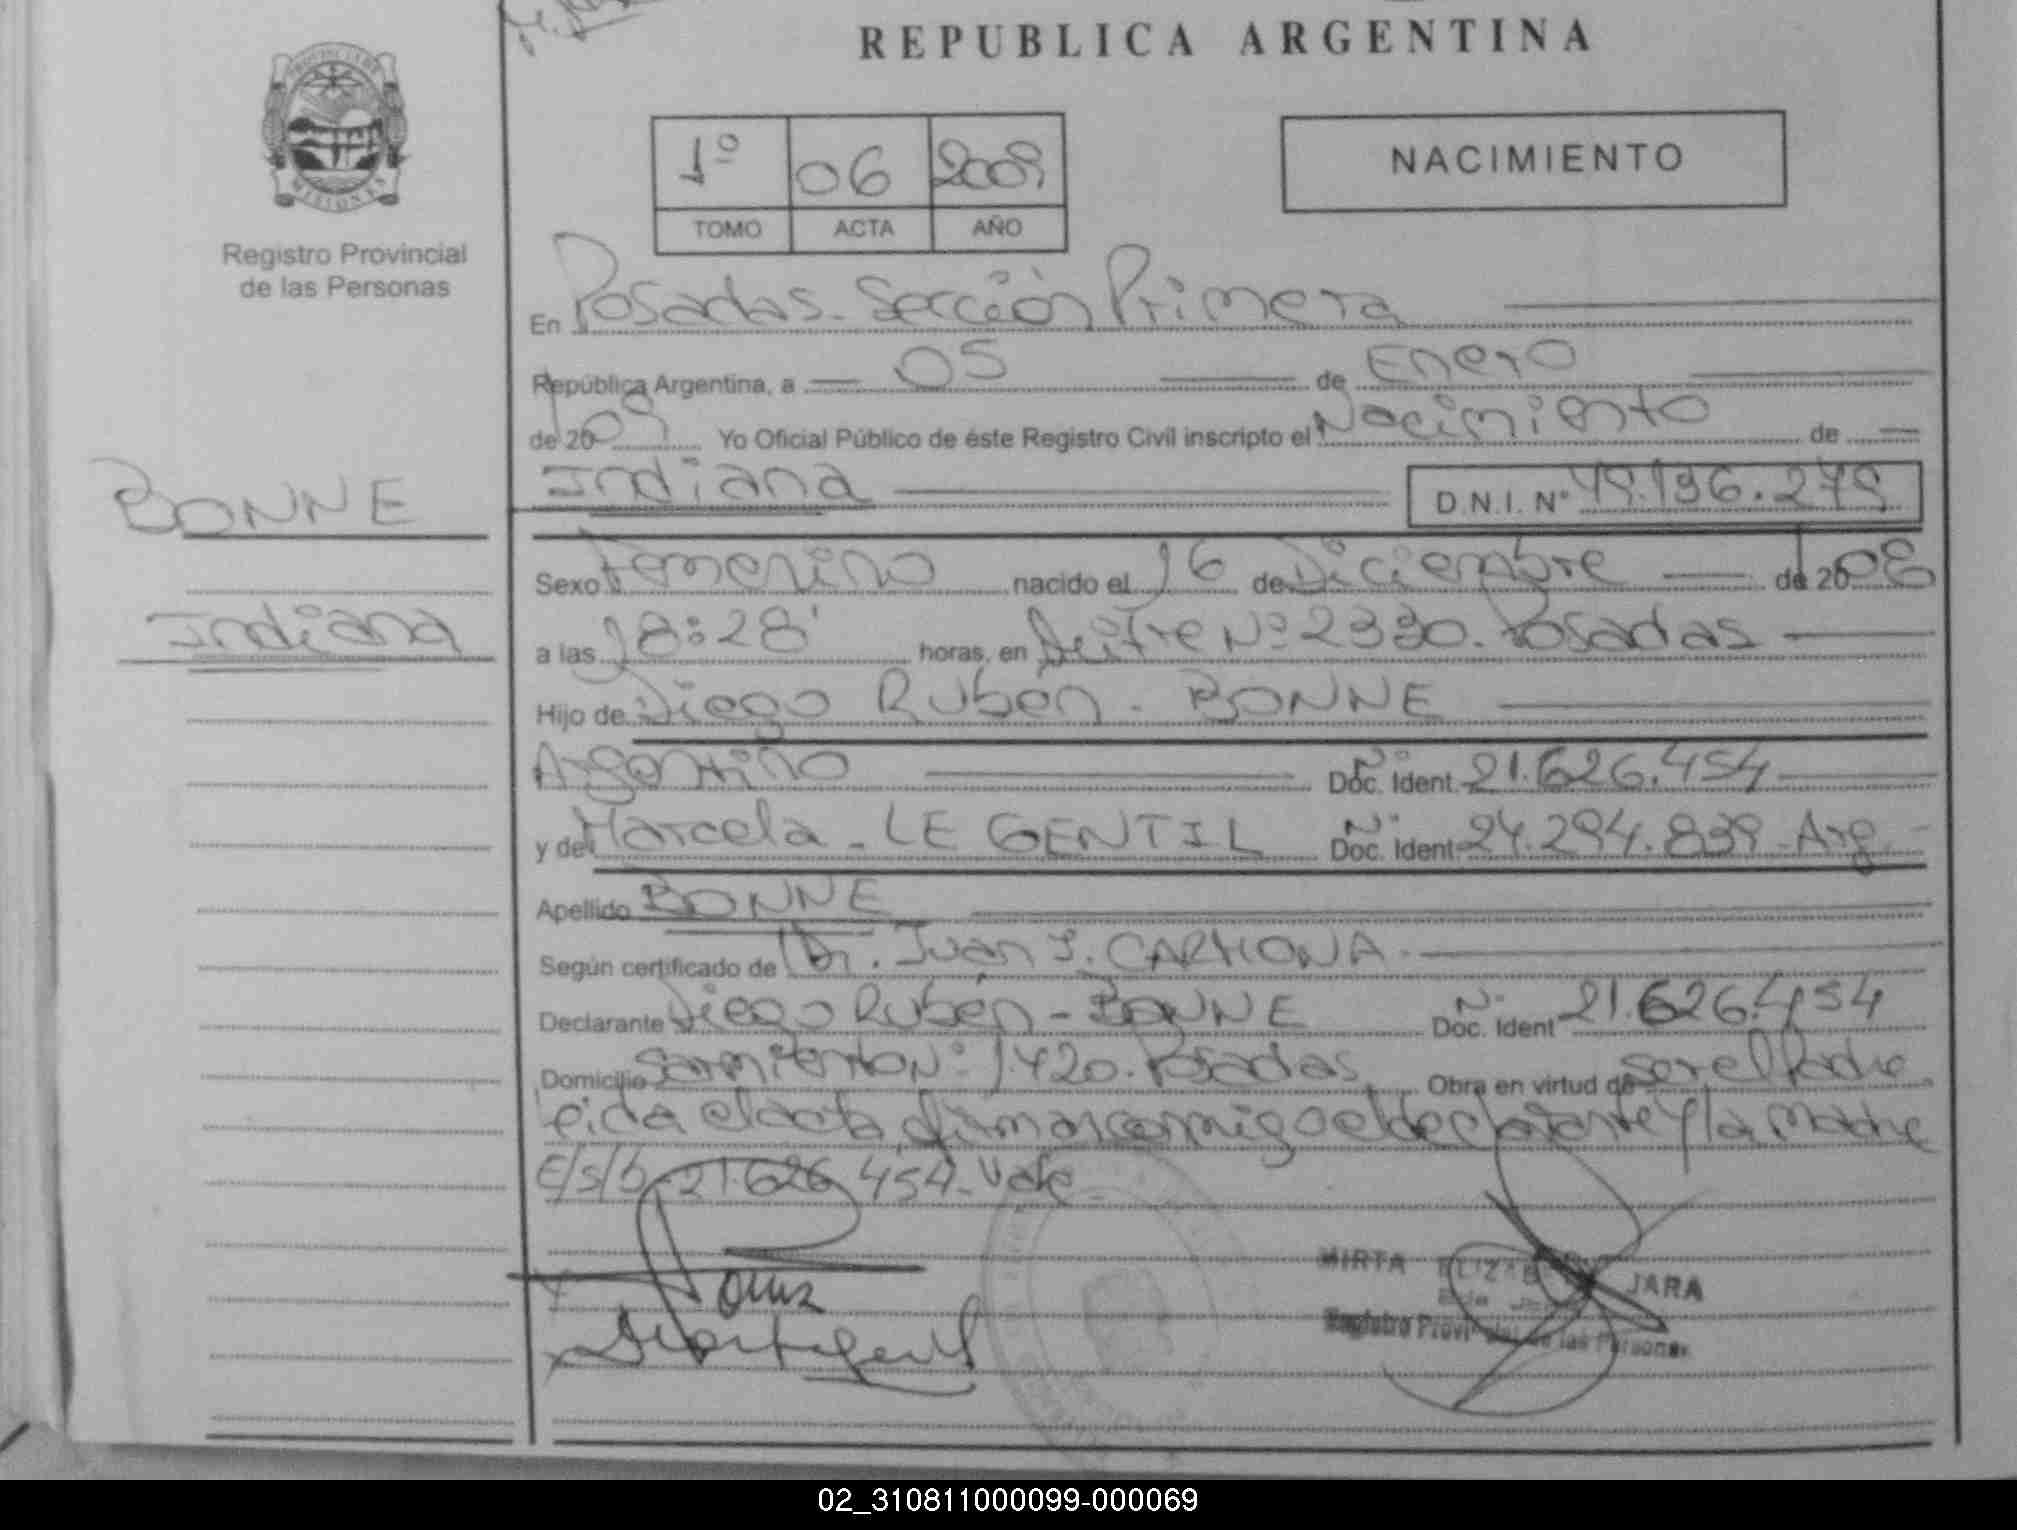 REPUBLICA ARGENTINA
PROVINCIA DE
MISIONES
Registro Provincial
de las Personas
1º 06 2009
TOMO ACTA AÑO
NACIMIENTO
En Posadas. Sección Primera
República Argentina, a 05 de Enero
de 2009 Yo Oficial Público de éste Registro Civil inscripto el Nacimiento de
BONNE
Indiana D.N.I. Nº 49.196.279
Sexo Femenino nacido el 16 de Diciembre de 2008
Indiana
a las 18:28' horas, en Mitre Nº 2330. Posadas
Hijo de Diego Ruben - BONNE
Argentino Nº Doc. Ident. 21.626.454
y de Marcela - LE GENTIL Nº Doc. Ident. 24.294.839 - Arg.
Apellido BONNE
Según certificado de Dr. Juan J. CARMONA.
Declarante Diego Rubén - BONNE Nº Doc. Ident 21.626.454
Domicilio Sarmiento Nº 1.420. Posadas Obra en virtud de ser el Padre
Leida el acta, firman conmigo el declarante y la madre
E/s/b 21.626.454 - Vale
MIRTA ELIZABETH JARA
Registro Provincial de las Personas
02_310811000099-000069